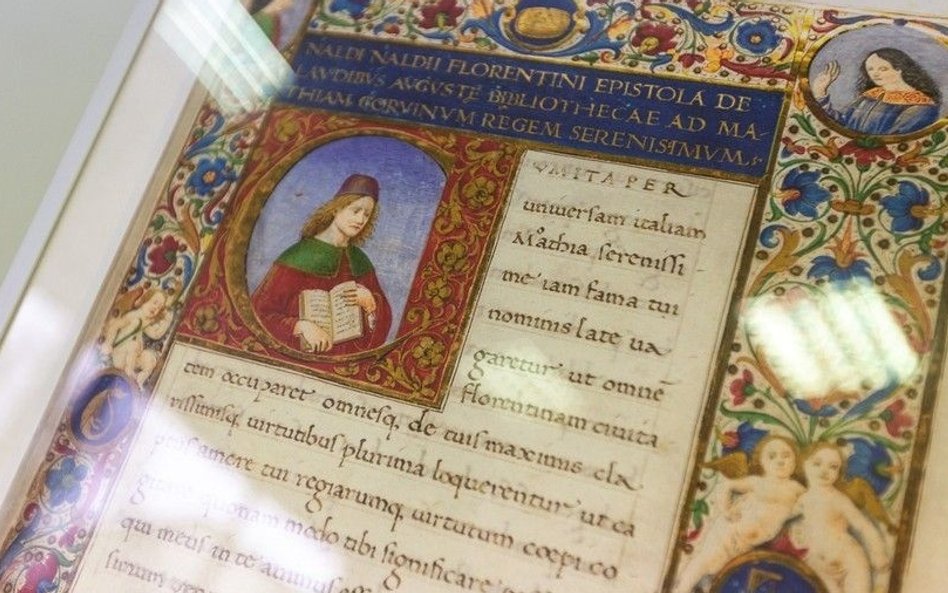 NALDI NALDII FLORENTINI EPISTOLA DE
LAVDIBVS AVGVSTE BIBLIOTHECAE AD MA-
THIAM CORVINVM REGEM SERENISIMVM
VM ITA PER
uniuersam italiam
Mathia serenissi
me iam fama tui
nominis late ua
garetur ut omnē
florentinam ciuita
tem occuparet omnesq, de tuis maximis cla
rissimisq, uirtutibus plurima loquerentur ut ea
amere tui regiarumq, uirtutum coepi co
quoniam modo tibi significare
qui metis in te animus